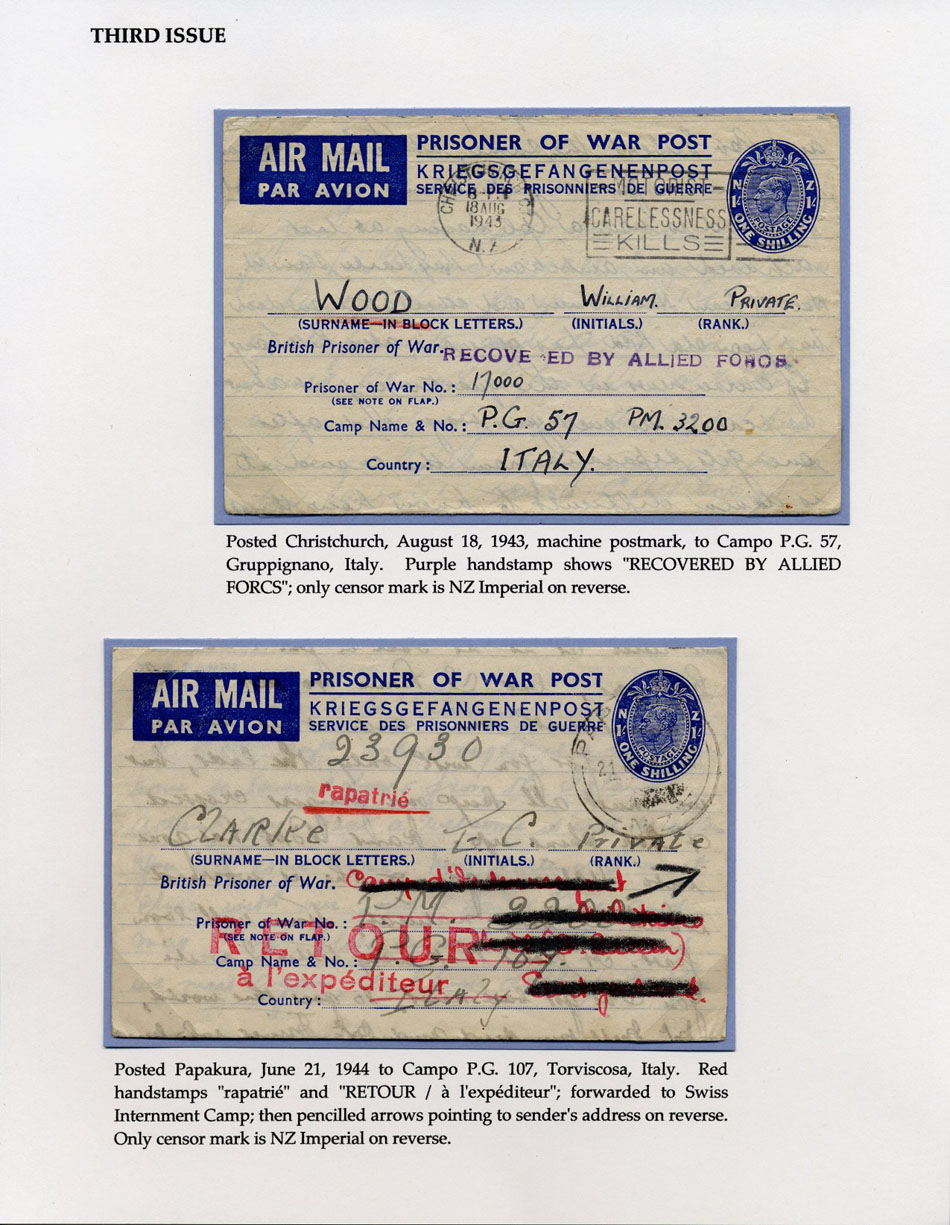 THIRD ISSUE
AIR MAIL
PAR AVION
PRISONER OF WAR POST
KRIEGSGEFANGENENPOST
SERVICE DES PRISONNIERS DE GUERRE
N Z
1/- 1/-
POSTAGE
ONE SHILLING
18 AUG
1943
N.Z.
CARELESSNESS
KILLS
WOOD WILLIAM. PRIVATE.
(SURNAME—IN BLOCK LETTERS.) (INITIALS.) (RANK.)
British Prisoner of War.
RECOVE ED BY ALLIED FORCS.
Prisoner of War No.: 17000
(SEE NOTE ON FLAP.)
Camp Name & No.: P.G. 57 PM. 3200
Country: ITALY.
Posted Christchurch, August 18, 1943, machine postmark, to Campo P.G. 57,
Gruppignano, Italy. Purple handstamp shows "RECOVERED BY ALLIED
FORCS"; only censor mark is NZ Imperial on reverse.
AIR MAIL
PAR AVION
PRISONER OF WAR POST
KRIEGSGEFANGENENPOST
SERVICE DES PRISONNIERS DE GUERRE
N Z
1/- 1/-
POSTAGE
ONE SHILLING
23930
21
rapatrié
CLARKE L.C. PRIVATE
(SURNAME—IN BLOCK LETTERS.) (INITIALS.) (RANK.)
British Prisoner of War.
Prisoner of War No.: P.M.
(SEE NOTE ON FLAP.)
RETOUR
Camp Name & No.: P.G. 107
à l'expéditeur
Country: ITALY
Posted Papakura, June 21, 1944 to Campo P.G. 107, Torviscosa, Italy. Red
handstamps "rapatrié" and "RETOUR / à l'expéditeur"; forwarded to Swiss
Internment Camp; then pencilled arrows pointing to sender's address on reverse.
Only censor mark is NZ Imperial on reverse.